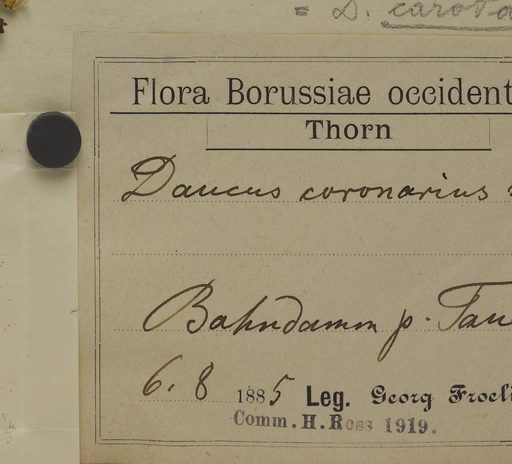 = D. carota
Flora Borussiae occident
Thorn
Daucus coronarius
Bahndamm p. Tau
6. 8 1885 Leg. Georg Froeli
Comm. H. Ross 1919.